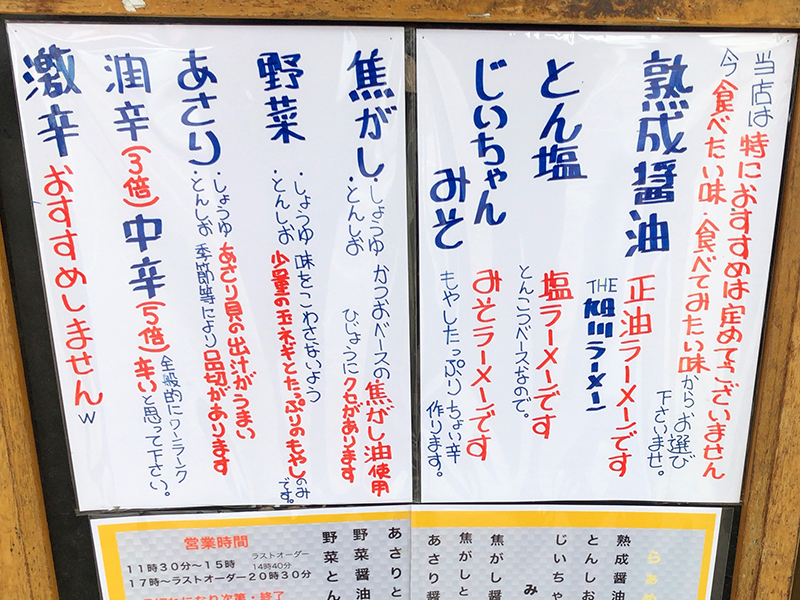 当店は特におすすめは定めてございません
今食べたい味・食べてみたい味からお選び
下さいませ。
熟成醤油
正油ラーメンです
THE旭川ラーメン
とん塩
塩ラーメンです
とんこつベースなので。
じいちゃん
みそ
みそラーメンです
もやしたっぷりちょい辛
作ります。
焦がし
・しょうゆ
・とんしお
かつおベースの焦がし油使用
ひじょうにクセがあります
野菜
・しょうゆ
・とんしお
味をこわさないよう
少量の玉ネギとたっぷりのもやしのみ
です。
あさり
・しょうゆ
・とんしお
あさり貝の出汁がうまい
季節等により品切があります
潤辛(3倍)中辛(5倍)辛いと思って下さい。
全般的にワーランク
激辛おすすめしませんw
営業時間
11時30分〜15時
ラストオーダー
14時40分
17時〜ラストオーダー20時30分
らぁめ
熟成醤油
とんしお
じいちゃ
み
焦がし醤
焦がしと
あさり醤
あさりと
野菜醤油
野菜とん